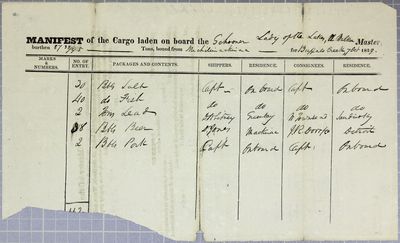 MANIFEST of the Cargo laden on board the Schooner Lady of the Lake, Master
burthen Tons, bound from Michilimackinac for Buffalo 1829.
MARKS & NUMBERS. NO. OF ENTRY. PACKAGES AND CONTENTS. SHIPPERS. RESIDENCE. CONSIGNEES. RESIDENCE.
30 Bbls Salt Capt On board Capt On board
40 do Fish do do do do
2 Lead Whitney Sandusky
38 Bbls Beer Jones Mackinac Detroit
2 Bbls Pork Capt Onboard Capt Onboard